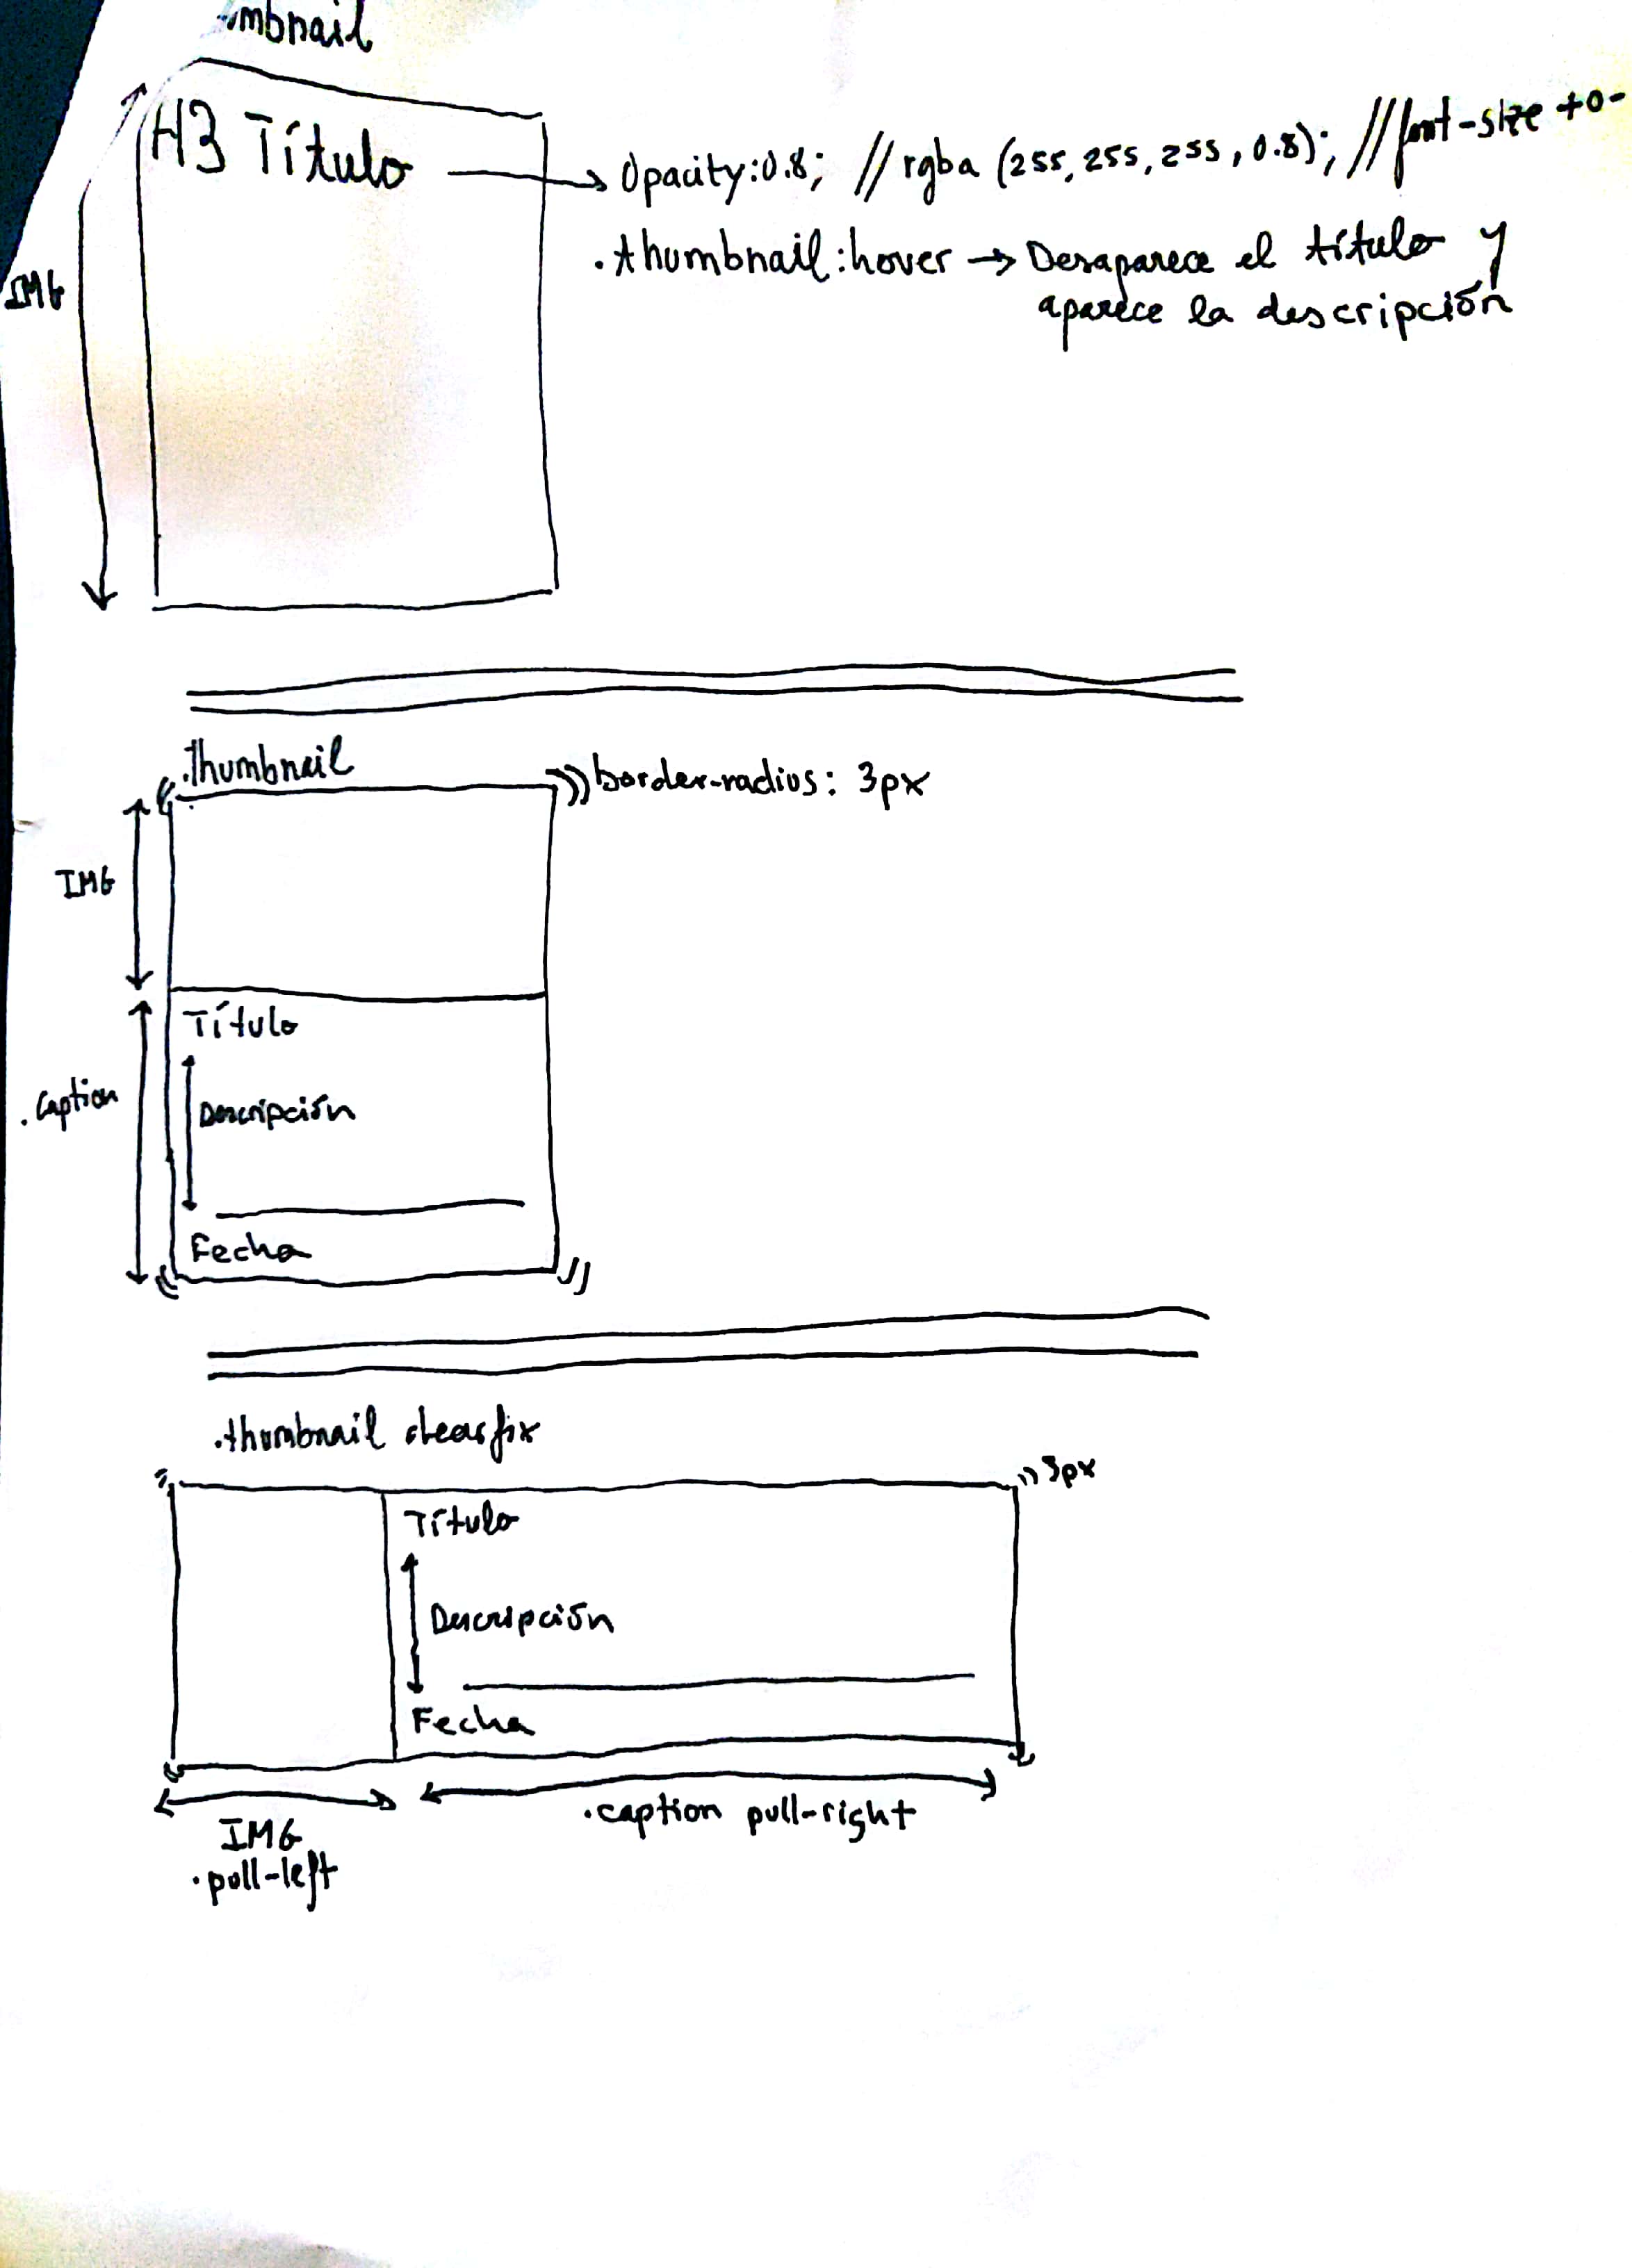 mbnail
H3 Título
Opacity:0.8; // rgba (255, 255, 255, 0.8); // font-size +0-
.thumbnail:hover → Desaparece el título y
aparece la descripción
IMG
.thumbnail
border-radius: 3px
IMG
Título
.caption
Descripción
Fecha
.thumbnail clearfix
3px
Título
Descripción
Fecha
IMG
.pull-left
.caption pull-right